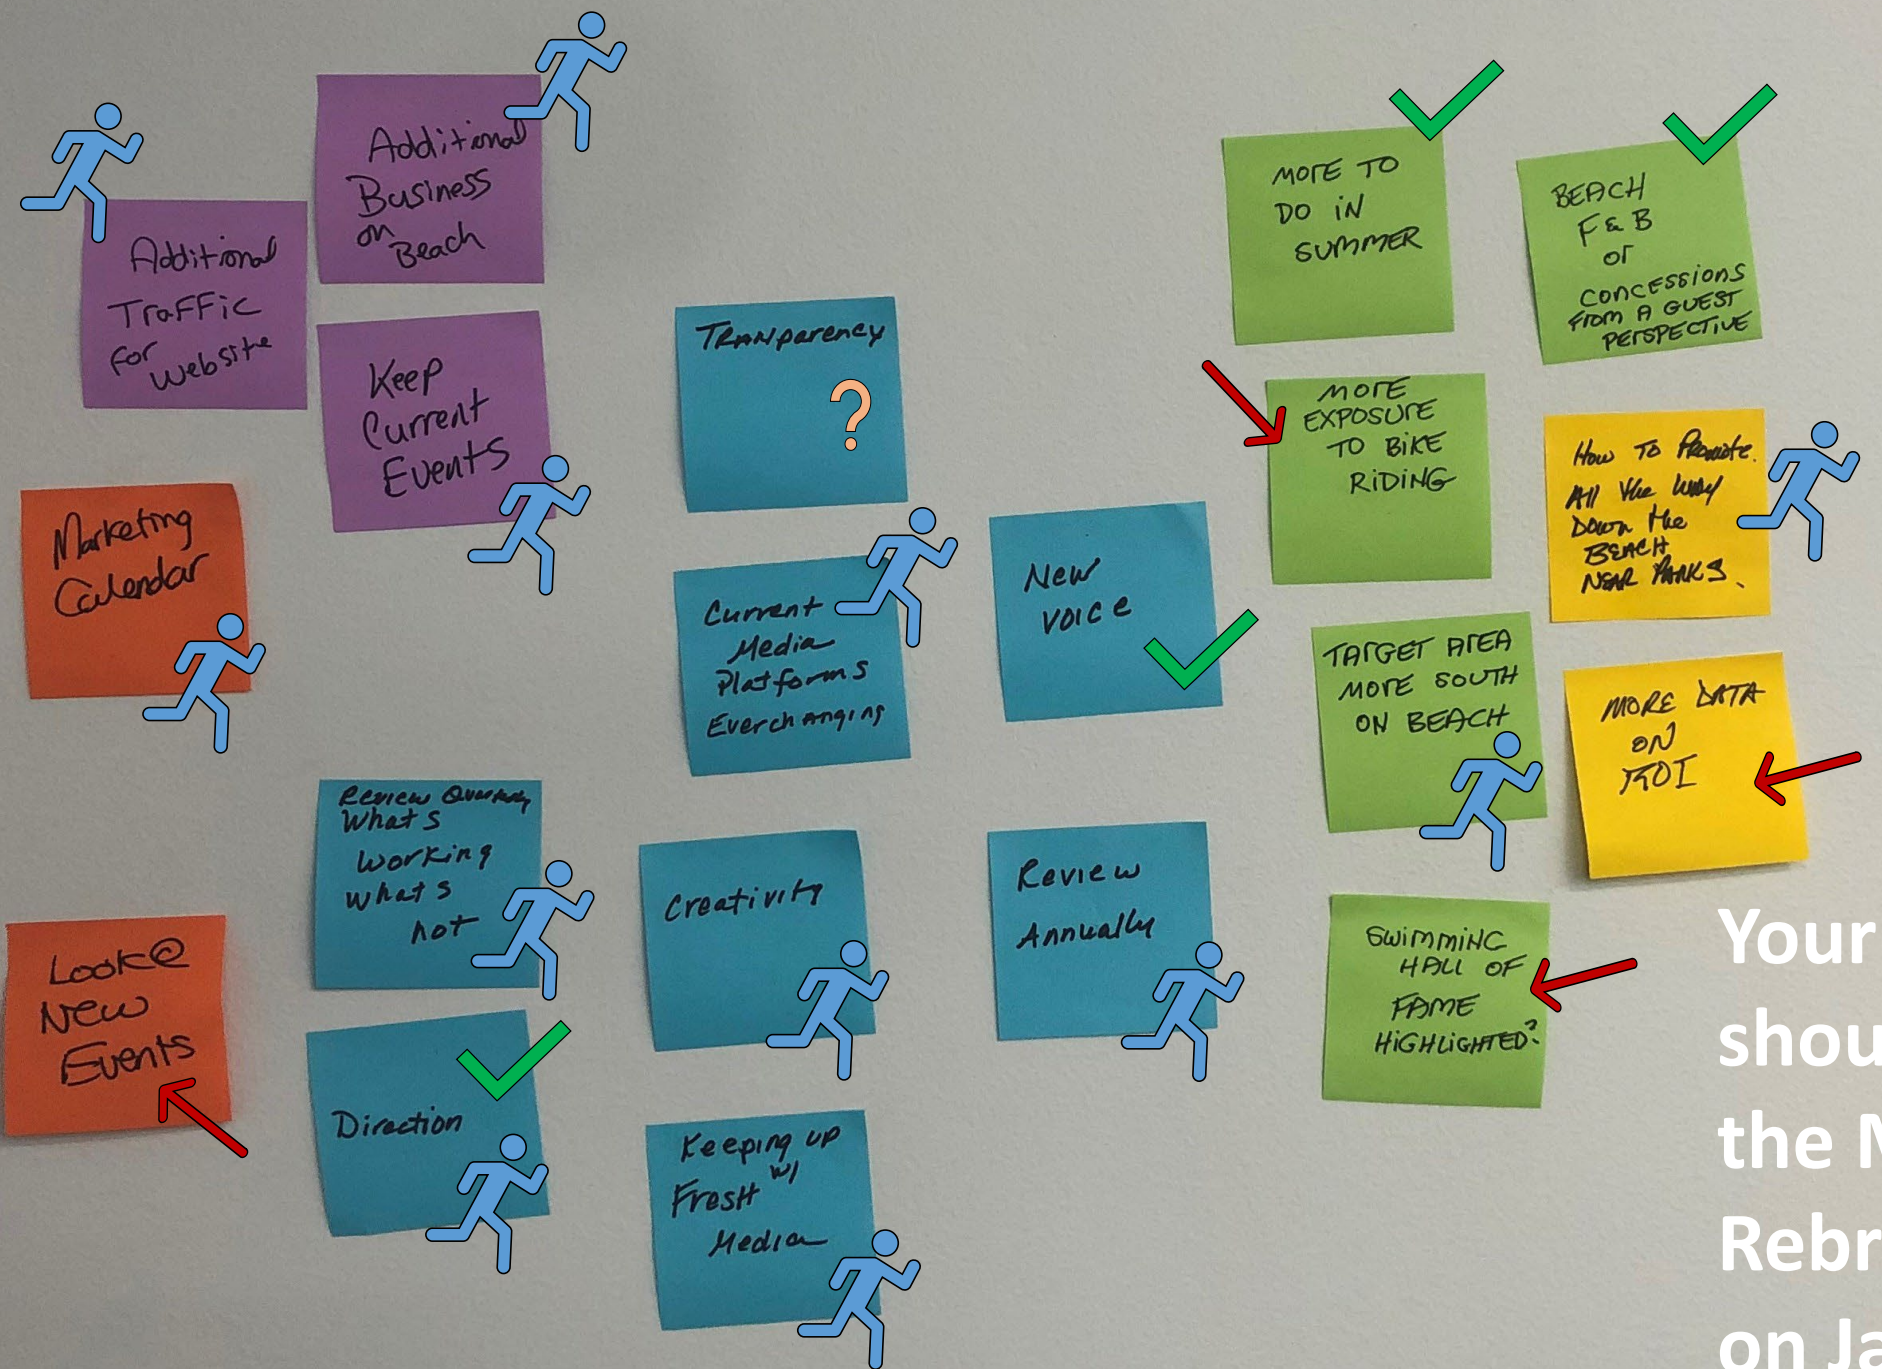 Additional
Traffic
for
Website
Additional
Business
on
Beach
Keep
Current
Events
Marketing
Calendar
Look@
New
Events
TRANparency
?
Current
Media
Platforms
Everchanging
New
Voice
Review Quarterly
What's
working
what's
not
Creativity
Review
Annually
Direction
Keeping up
w/
FresH
Media
MORE TO
DO iN
SUMMER
BEACH
F & B
or
CONCESSIONS
FROM A GUEST
PERSPECTIVE
MORE
EXPOSURE
TO BIKE
RiDiNG
How To Promote
All the way
Down the
BEACH
NEAR PARKS.
TARGET AREA
MORE SOUTH
ON BEACH
MORE DATA
ON
ROI
SWiMMiNG
HALL OF
FAME
HiGHLiGHTED?
Your
shou
the M
Rebr
on Ja